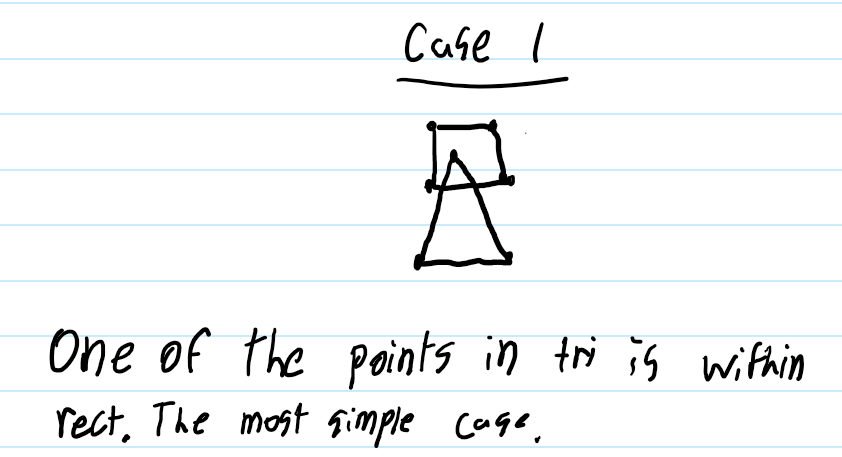 Case 1
One of the points in tri is within
rect. The most simple case.